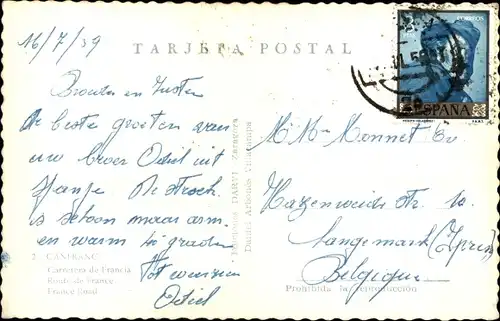 16/7/59
TARJETA POSTAL
CORREOS
ESPAÑA
Broeder en Zuster
de beste groeten van
uw broer Odiel uit
Spanje De streek
is schoon maar arm
en warm 40 graden
Tot weerziens
Odiel
M. Mme Monnet
Hazenweide str. 10
Langemark (Ypres)
Belgique
2 CANFRANC
Carretera de Francia
Route de France
France Road
DARVI Zaragoza
Prohibida la reproducción